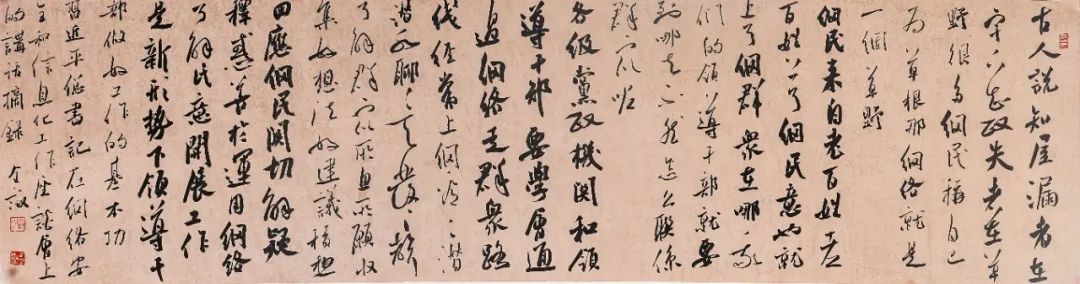 古人說知屋漏者在
宇下知政失者在草
野很多網民稱自己
為草根那網絡就是
一個草野
網民来自老百姓老
百姓上了網民意也就
上了網群衆在哪兒我
們的領導干部就要
到哪去不然怎么聯係
群众呢
各級黨政機関和領
導干部要學會通
过網絡走群衆路
线經常上網看看潜
潜水聊聊天發發聲
了解群众所思所願收
集好想法好建議積極
回應網民関切解疑
釋惑善於運用網絡
了解民意開展工作
是新形勢下領導干
部做好工作的基本功
習近平總書記在網絡安
全和信息化工作座談會上
的講話摘錄